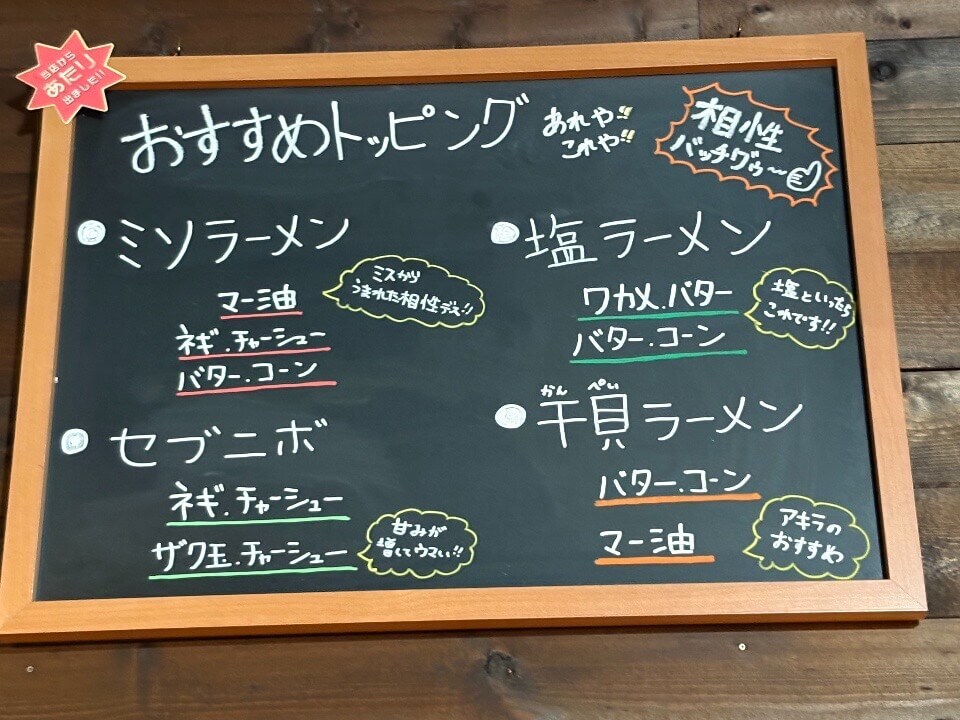 当店から
あたり
出ました!!
おすすめトッピング
あれや!!
これや!!
相性
バッチグゥ〜
ミソラーメン
マー油
ミスから
うまれた相性デス!!
ネギ.チャーシュー
バター.コーン
セブニボ
ネギ.チャーシュー
ザク玉.チャーシュー
甘みが
増してウマい!!
塩ラーメン
ワカメ.バター
バター.コーン
塩といったら
これです!!
かん ぺい
干貝ラーメン
バター.コーン
マー油
アキラの
おすすめ